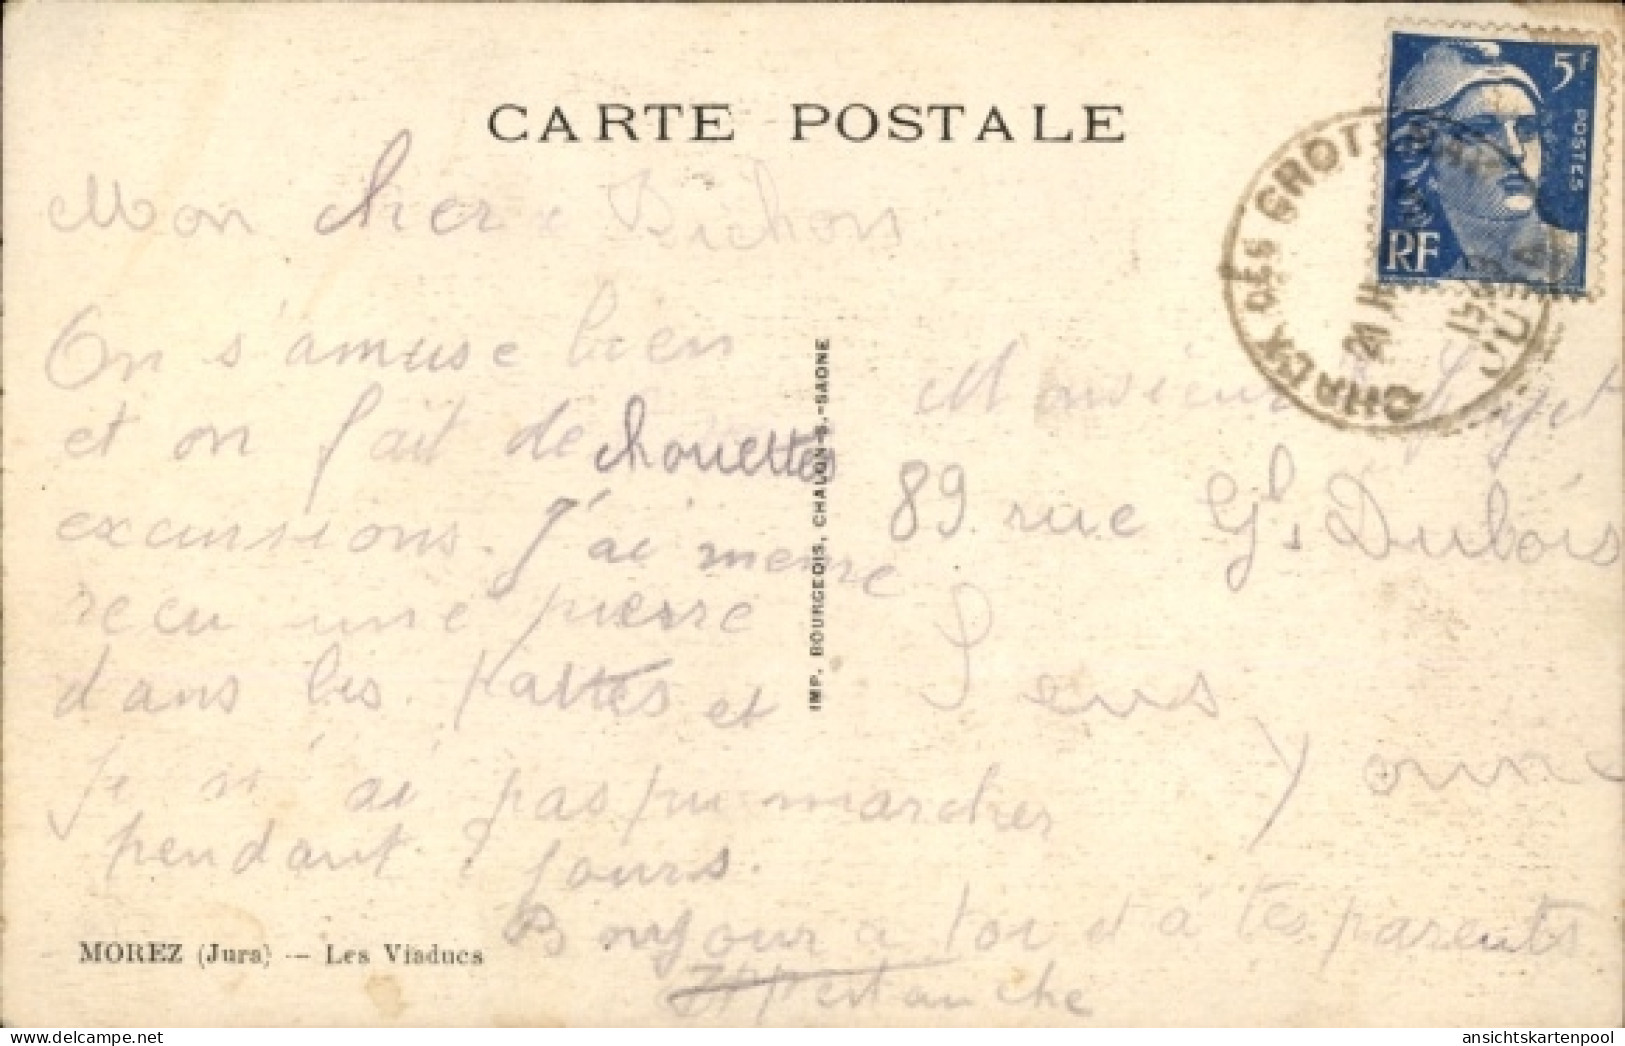 CARTE POSTALE
5F
POSTES
RF
CHAUX DES CROT
21 H
Mon cher Bichons
On s'amuse bien
et on fait de chouettes
excursions. J'ai meme
recu une pierre
dans les pattes et
je n'ai pas pu marcher
pendant 2 jours.
Bonjour a toi et à tes parents
IMP. BOURGEOIS, CHALON-S.-SAONE
Monsieur
89 rue Gl Dubois
Sens
Yonne
MOREZ (Jura) -- Les Viaducs
ansichtskartenpool